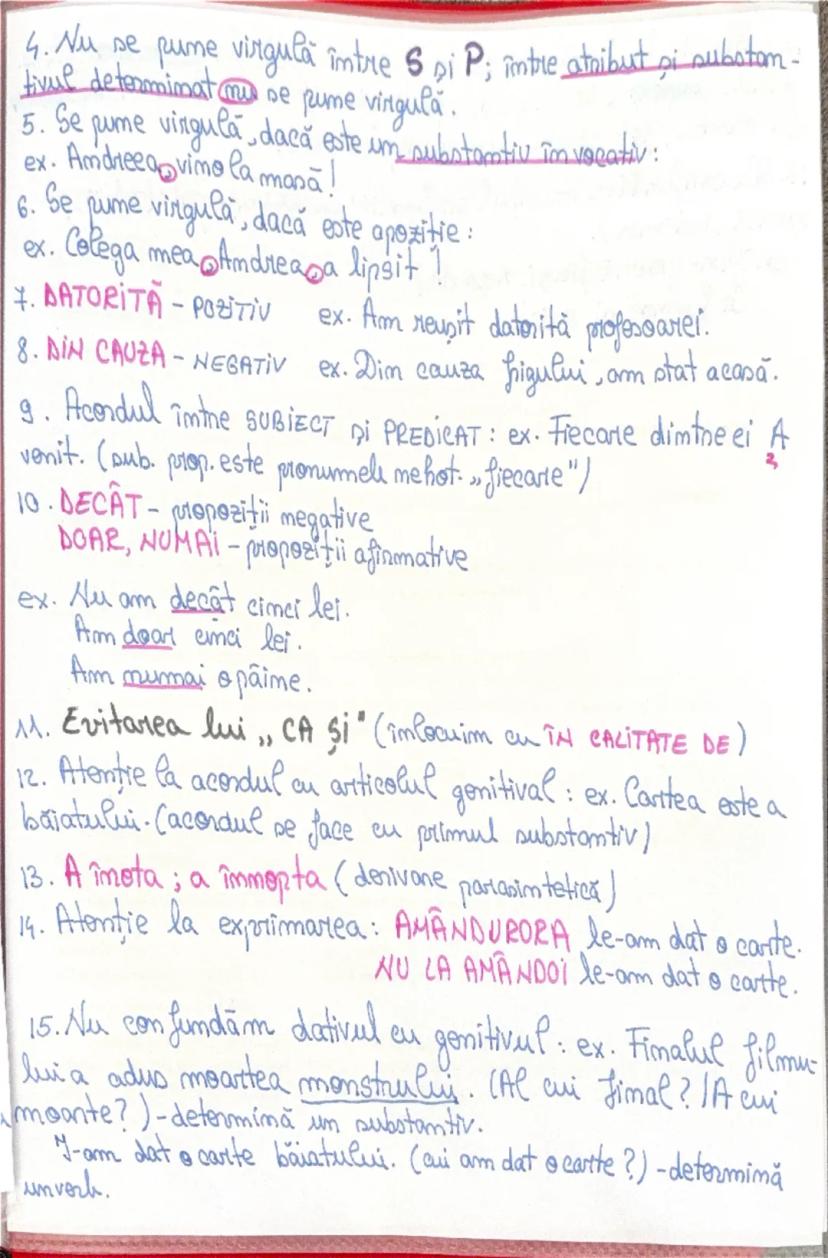 4. Nu se pune virgulă între S și P; între atribut și substan-
tivul determinat nu se pune virgulă.
5. Se pune virgulă, dacă este un substantiv în vocativ:
ex. Andreea, vino la masă!
6. Se pune virgulă, dacă este apoziție:
ex. Colega mea, Andreea, a lipsit!
7. DATORITĂ - POZITIV ex. Am reușit datorită profesoarei.
8. DIN CAUZA - NEGATIV ex. Din cauza frigului, am stat acasă.
9. Acordul între SUBIECT ȘI PREDICAT: ex. Fiecare dintre ei A
venit. (sub. prop. este pronumele nehot. „fiecare")
10. DECÂT - propoziții negative
DOAR, NUMAI - propoziții afirmative
ex. Nu am decât cinci lei.
Am doar cinci lei.
Am numai o pâine.
11. Evitarea lui „CA ȘI" (înlocuim cu ÎN CALITATE DE)
12. Atenție la acordul cu articolul genitival: ex. Cartea este a
băiatului. (acordul se face cu primul substantiv)
13. A înota; a înnopta (derivare parasintetică)
14. Atenție la exprimarea: AMÂNDURORA le-am dat o carte.
NU LA AMÂNDOI le-am dat o carte.
15. Nu confundăm dativul cu genitivul: ex. Finalul filmu-
lui a adus moartea monstrului. (Al cui final? /A cui
moarte?) - determină un substantiv.
I-am dat o carte băiatului. (cui am dat o carte?) - determină
un verb.